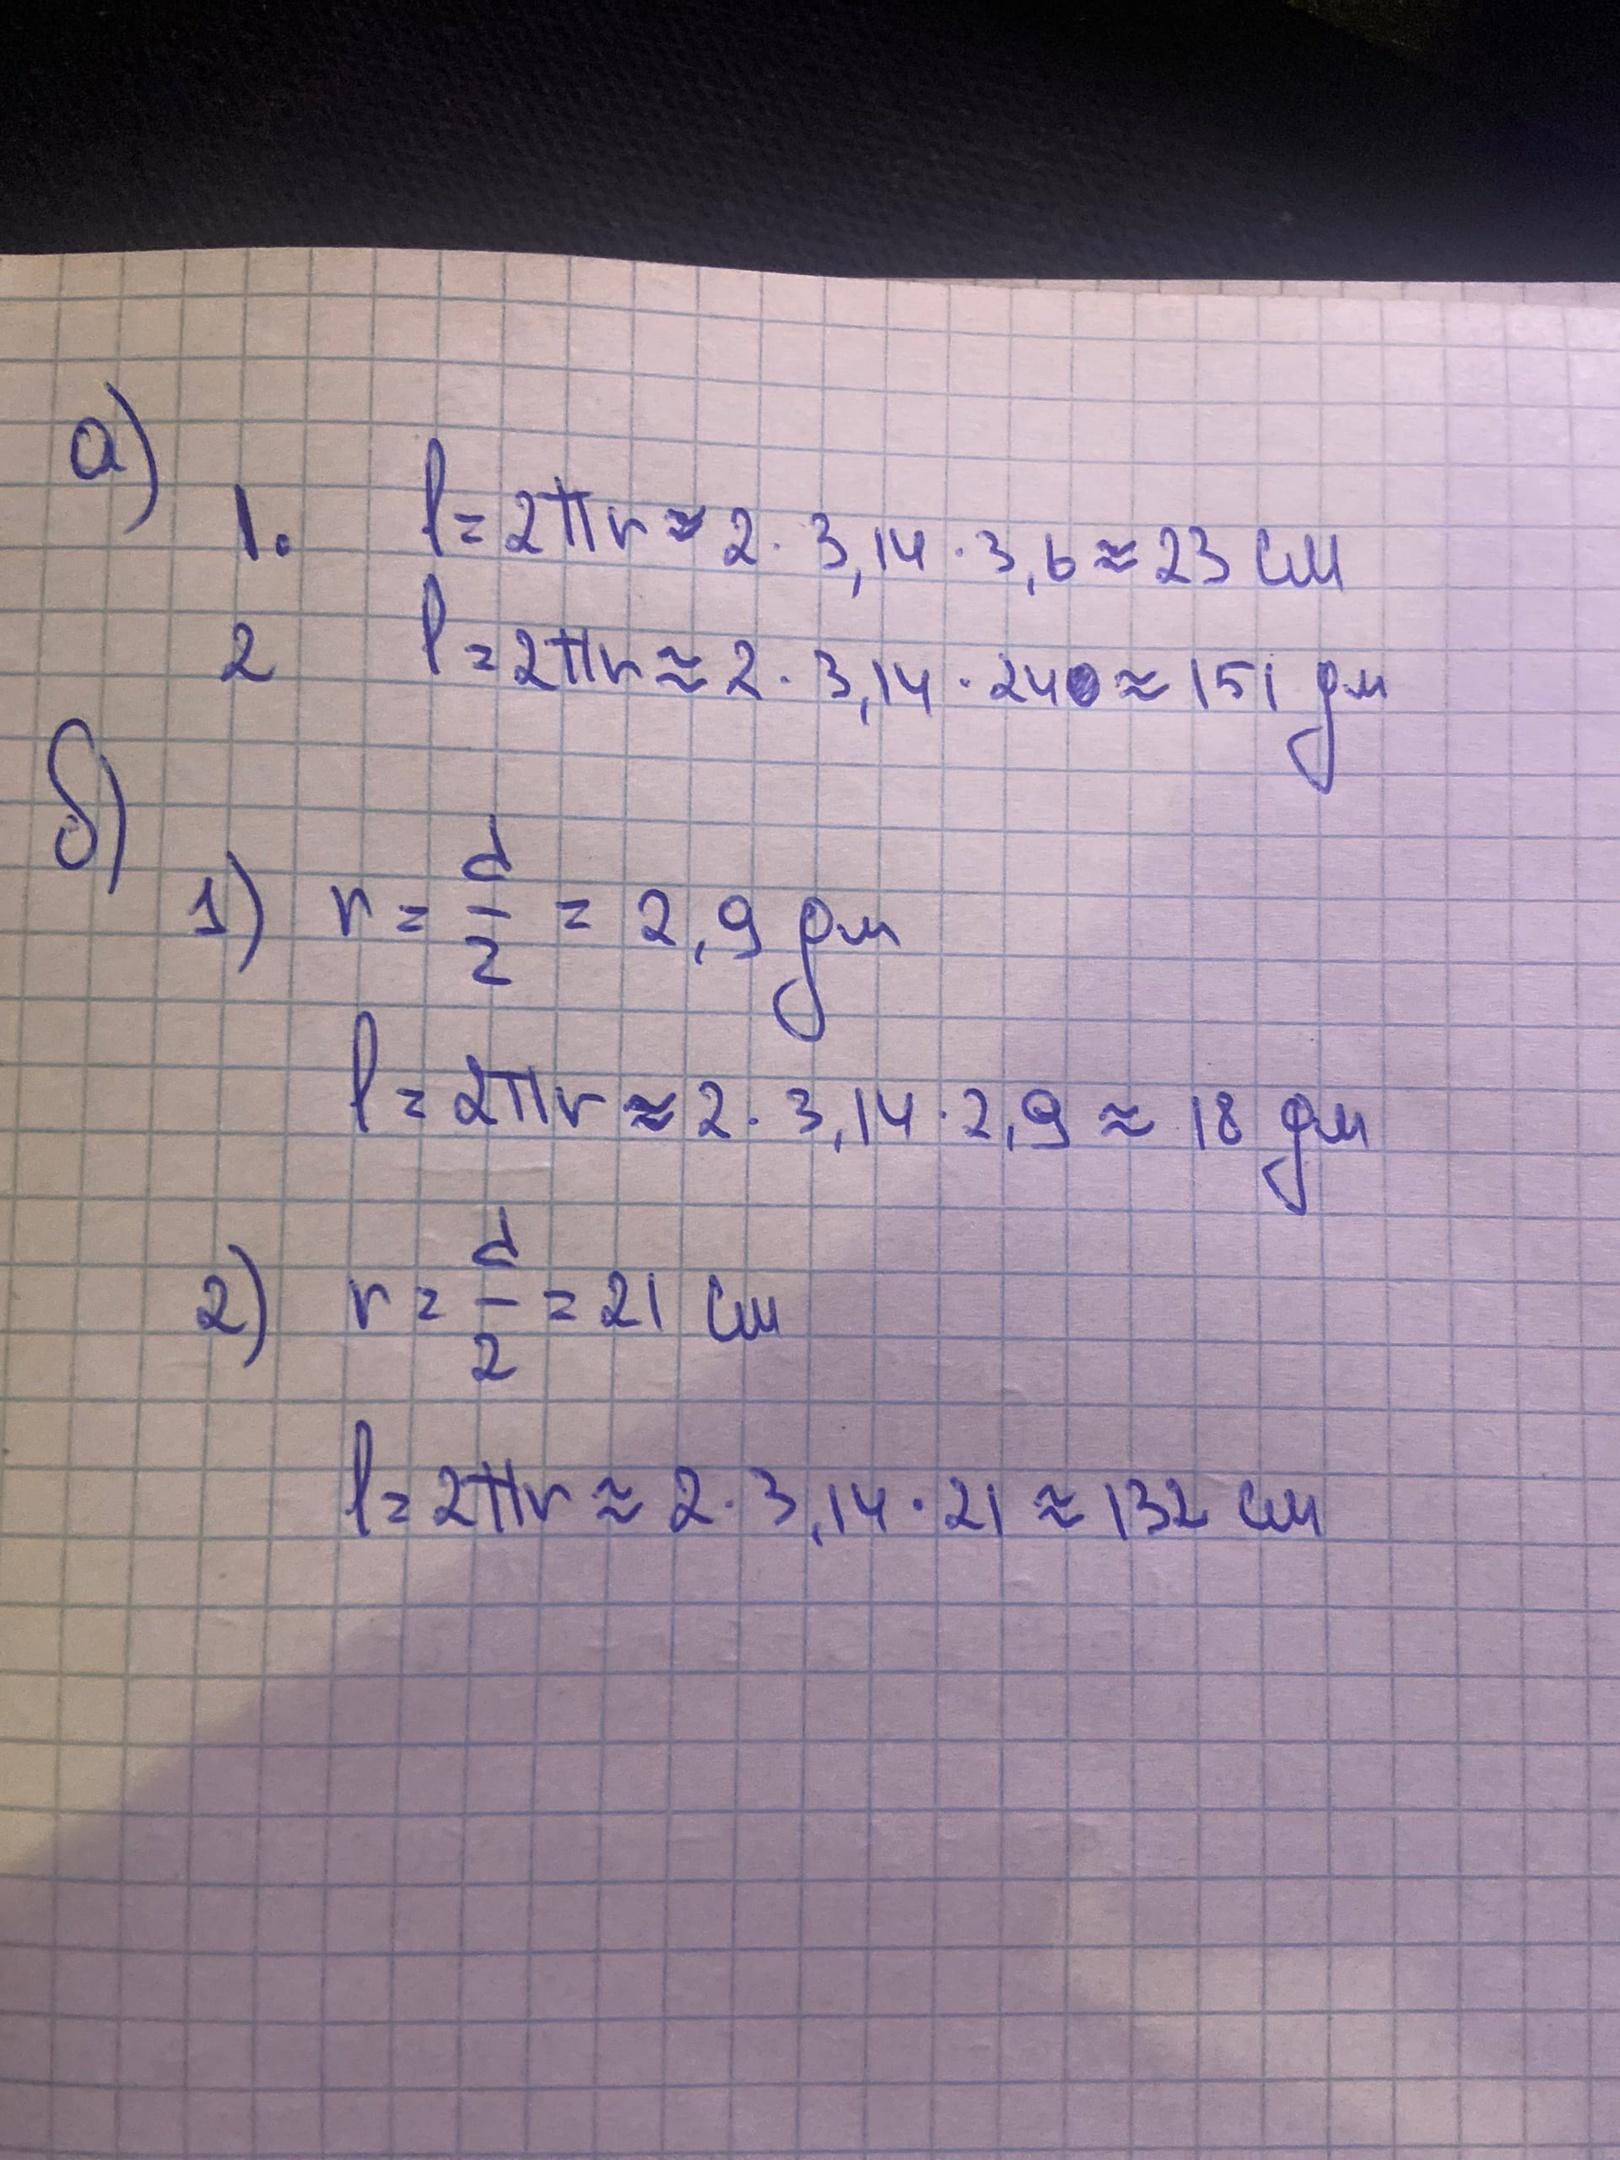 а)
1. l = 2πr ≈ 2 · 3,14 · 3,6 ≈ 23 см
2 l = 2πr ≈ 2 · 3,14 · 24 ≈ 151 дм
б)
1) r = d/2 = 2,9 дм
l = 2πr ≈ 2 · 3,14 · 2,9 ≈ 18 дм
2) r = d/2 = 21 см
l = 2πr ≈ 2 · 3,14 · 21 ≈ 132 см